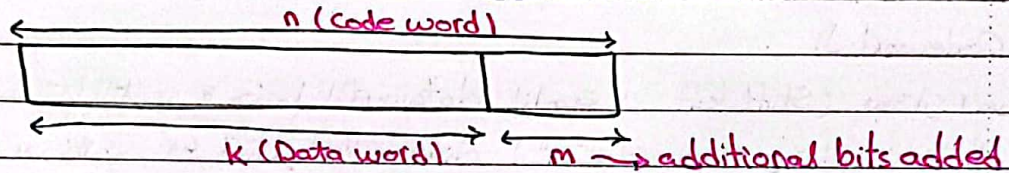 n (Code word)
k (Data word) m → additional bits added